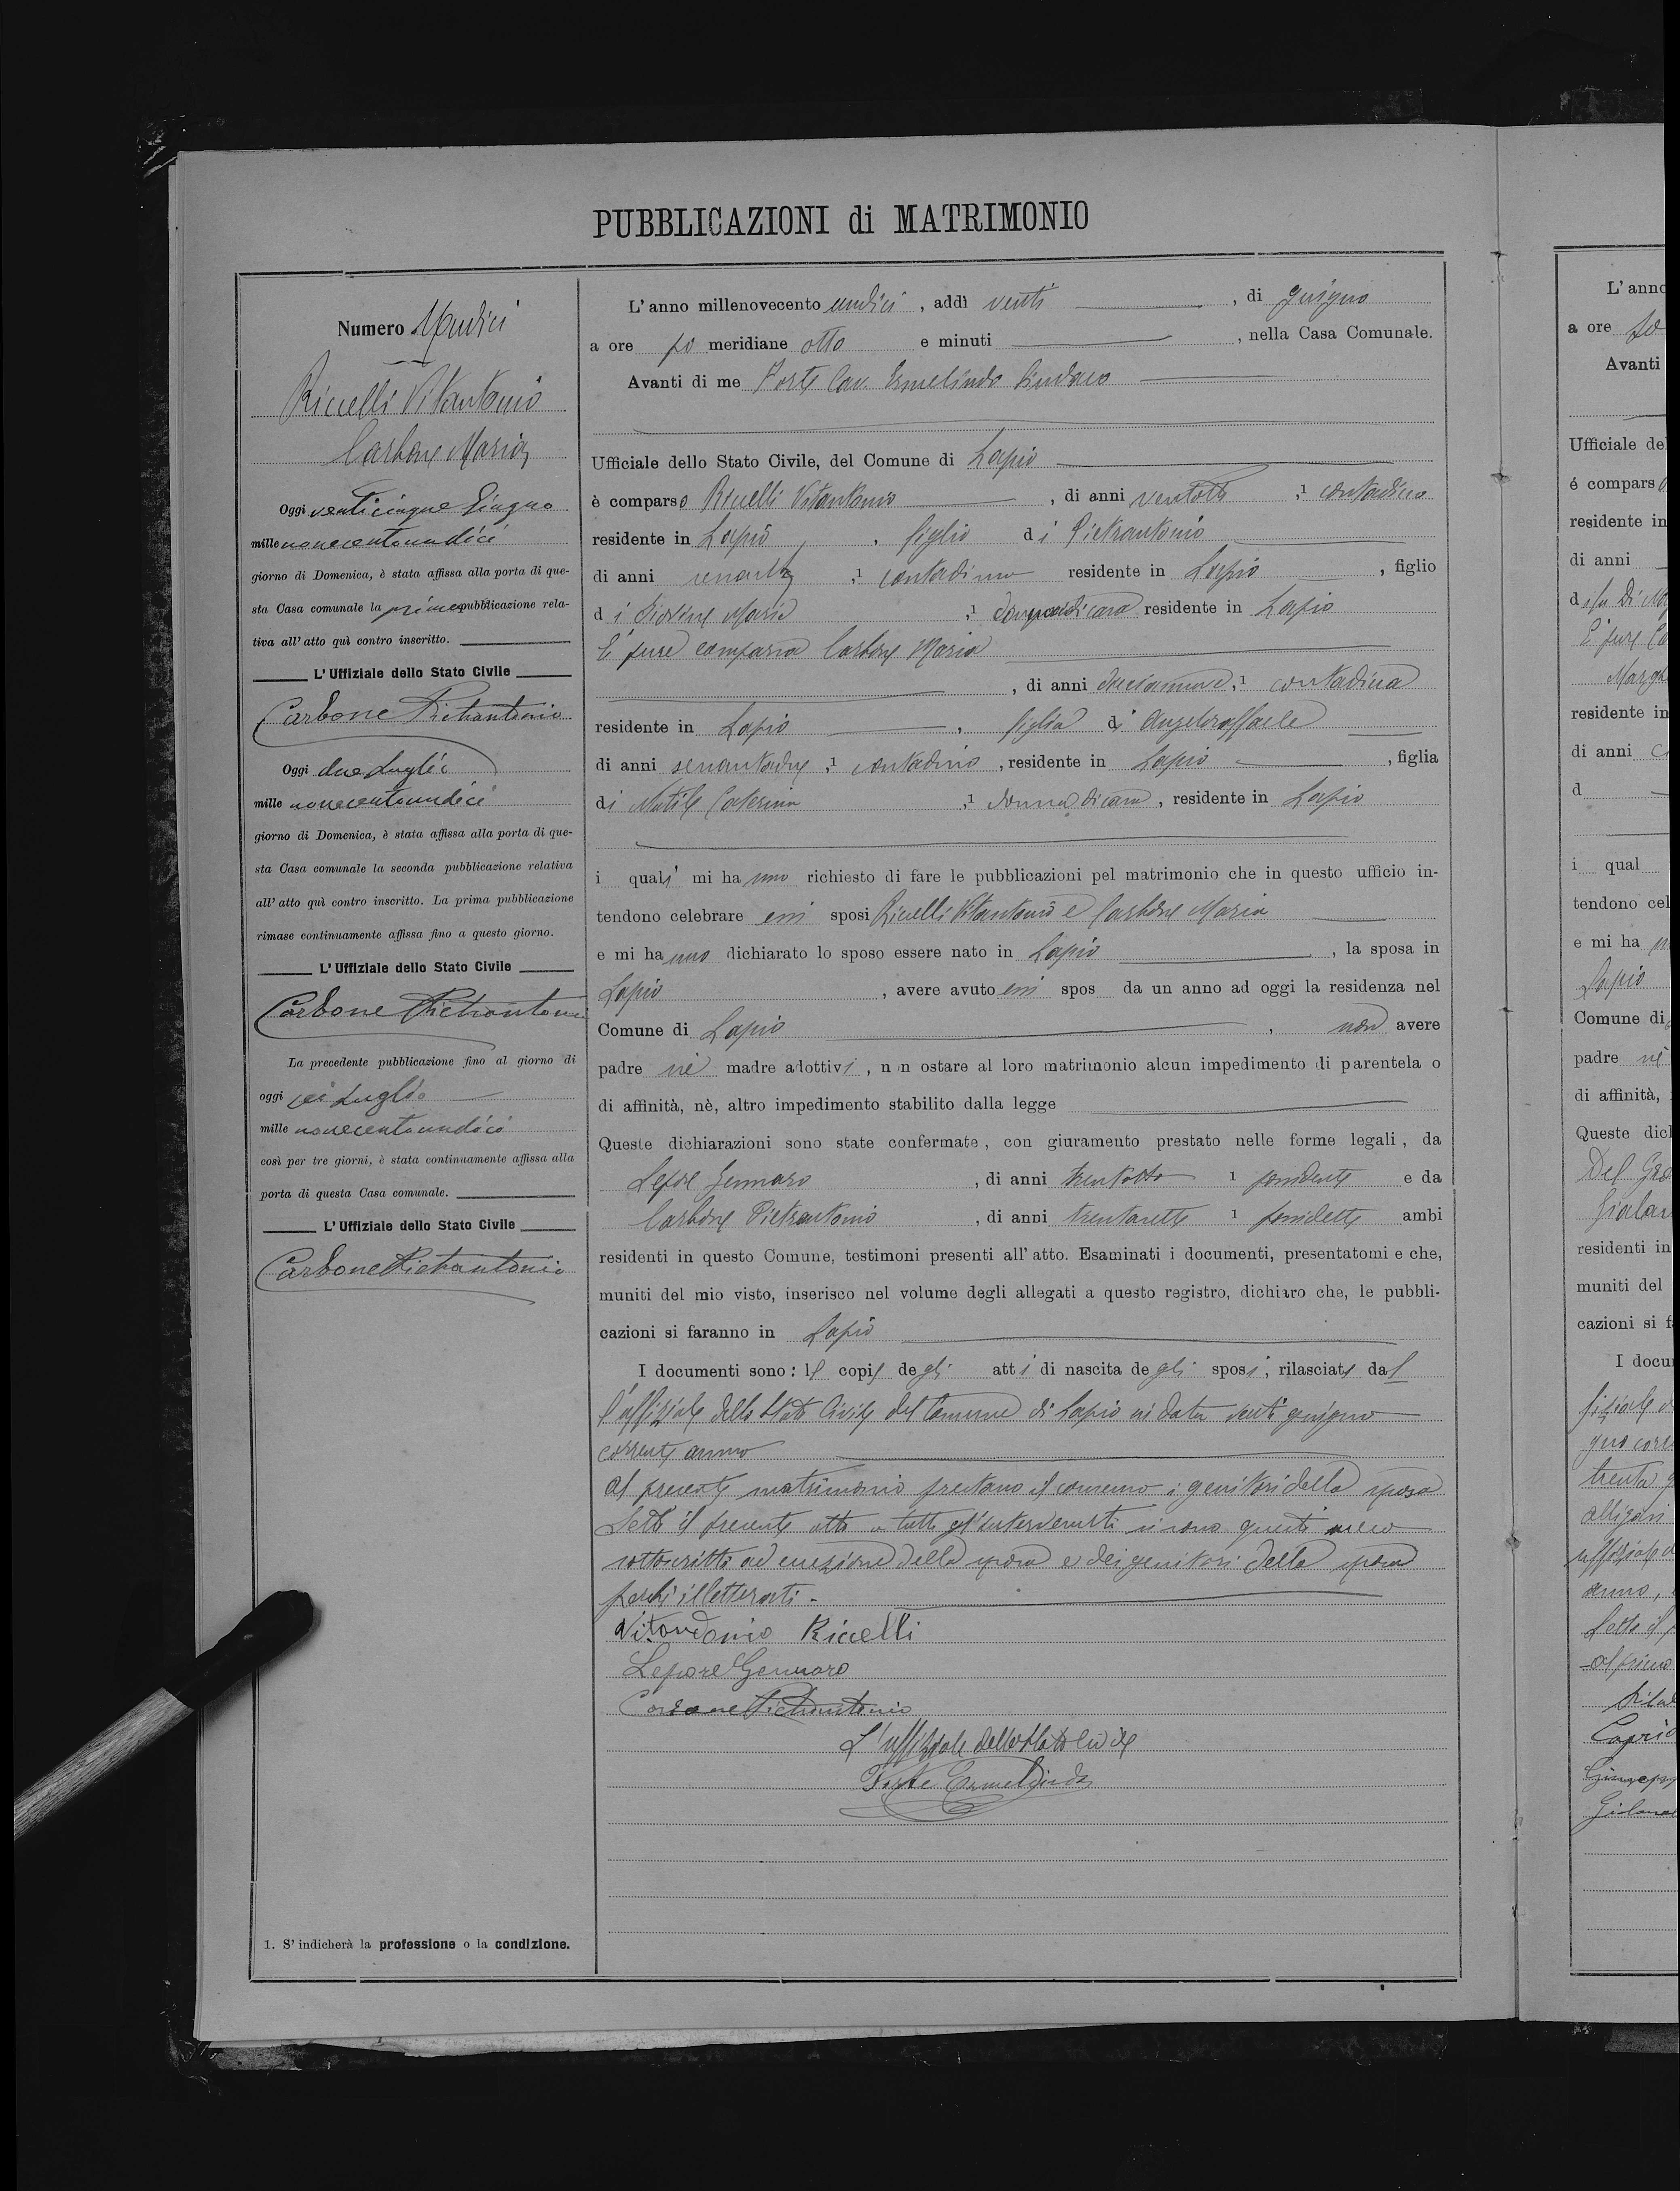 PUBBLICAZIONI di MATRIMONIO
Numero Undici
Riccelli Vitantonio
Carbone Maria
Oggi venticinque Giugno
mille novecentoundici
giorno di Domenica, è stata affissa alla porta di que-
sta Casa comunale la prima pubblicazione rela-
tiva all' atto quì contro inscritto.
L' Uffiziale dello Stato Civile
Carbone Pietrantonio
Oggi due Luglio
mille novecentoundici
giorno di Domenica, è stata affissa alla porta di que-
sta Casa comunale la seconda pubblicazione relativa
all' atto quì contro inscritto. La prima pubblicazione
rimase continuamente affissa fino a questo giorno.
L' Uffiziale dello Stato Civile
Carbone Pietrantonio
La precedente pubblicazione fino al giorno di
oggi sei Luglio
mille novecentoundici
così per tre giorni, è stata continuamente affissa alla
porta di questa Casa comunale.
L' Uffiziale dello Stato Civile
Carbone Pietrantonio
1. S' indicherà la professione o la condizione.
L' anno millenovecento undici, addì venti, di giugno
a ore po meridiane otto e minuti, nella Casa Comunale.
Avanti di me Forte Cav. Ermelindo Sindaco
Ufficiale dello Stato Civile, del Comune di Lapio
è comparso Riccelli Vitantonio, di anni ventotto, 1 contadino
residente in Lapio, figlio di Pietrantonio
di anni, 1 contadino residente in Lapio, figlio
di Maria, 1 donna di casa residente in Lapio
È pure comparsa Carbone Maria
, di anni diciannove, 1 contadina
residente in Lapio, figlia di Angeloraffaele
di anni sessantadue, 1 contadino, residente in Lapio, figlia
di Caterina, 1 donna di casa, residente in Lapio
i quali mi hanno richiesto di fare le pubblicazioni pel matrimonio che in questo ufficio in-
tendono celebrare essi sposi Riccelli Vitantonio e Carbone Maria
e mi hanno dichiarato lo sposo essere nato in Lapio, la sposa in
Lapio, avere avuto essi spos da un anno ad oggi la residenza nel
Comune di Lapio, non avere
padre nè madre adottivi, non ostare al loro matrimonio alcun impedimento di parentela o
di affinità, nè, altro impedimento stabilito dalla legge
Queste dichiarazioni sono state confermate, con giuramento prestato nelle forme legali, da
Lepore Gennaro, di anni trentotto 1 possidente e da
Carbone Pietrantonio, di anni trentasette 1 possidente ambi
residenti in questo Comune, testimoni presenti all' atto. Esaminati i documenti, presentatomi e che,
muniti del mio visto, inserisco nel volume degli allegati a questo registro, dichiaro che, le pubbli-
cazioni si faranno in Lapio
I documenti sono: le copie degli atti di nascita degli sposi, rilasciate dal
l'uffiziale dello Stato Civile del Comune di Lapio in data venti giugno
corrente anno
Al presente matrimonio prestano il consenso i genitori della sposa
Letto il presente atto a tutti gl'intervenuti si sono questi meco
sottoscritti ad eccezione della sposa e dei genitori della sposa
perchè illetterati.
Vitandonio Riccelli
Lepore Gennaro
Carbone Pietrantonio
L'uffiziale dello Stato Civile
Forte Ermelindo
L' anno
a ore
Avanti
Ufficiale de
é compars
residente in
di anni
d
È pure
residente in
di anni
d
i qual
tendono cel
e mi ha
Lapio
Comune di
padre nè
di affinità,
Queste dich
residenti in
muniti del
cazioni si f
I docu